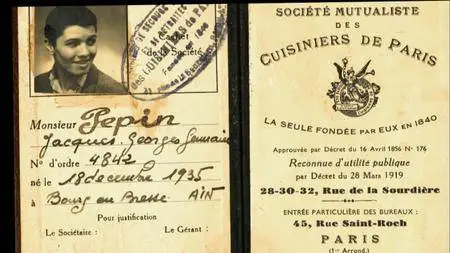 Cachet
de la Société
Monsieur Pepin
Jacques, Georges Germain
N° d'ordre 4842
né le 18 decembre 1935
à Bourg en Bresse AIN
Pour justification
Le Sociétaire : Le Gérant :
SOCIÉTÉ MUTUALISTE
DES
CUISINIERS DE PARIS
LA SEULE FONDÉE PAR EUX EN 1840
Approuvée par Décret du 16 Avril 1856 N° 176
Reconnue d'utilité publique
par Décret du 28 Mars 1919
28-30-32, Rue de la Sourdière
ENTRÉE PARTICULIÈRE DES BUREAUX :
45, Rue Saint-Roch
PARIS
(1er Arrond.)